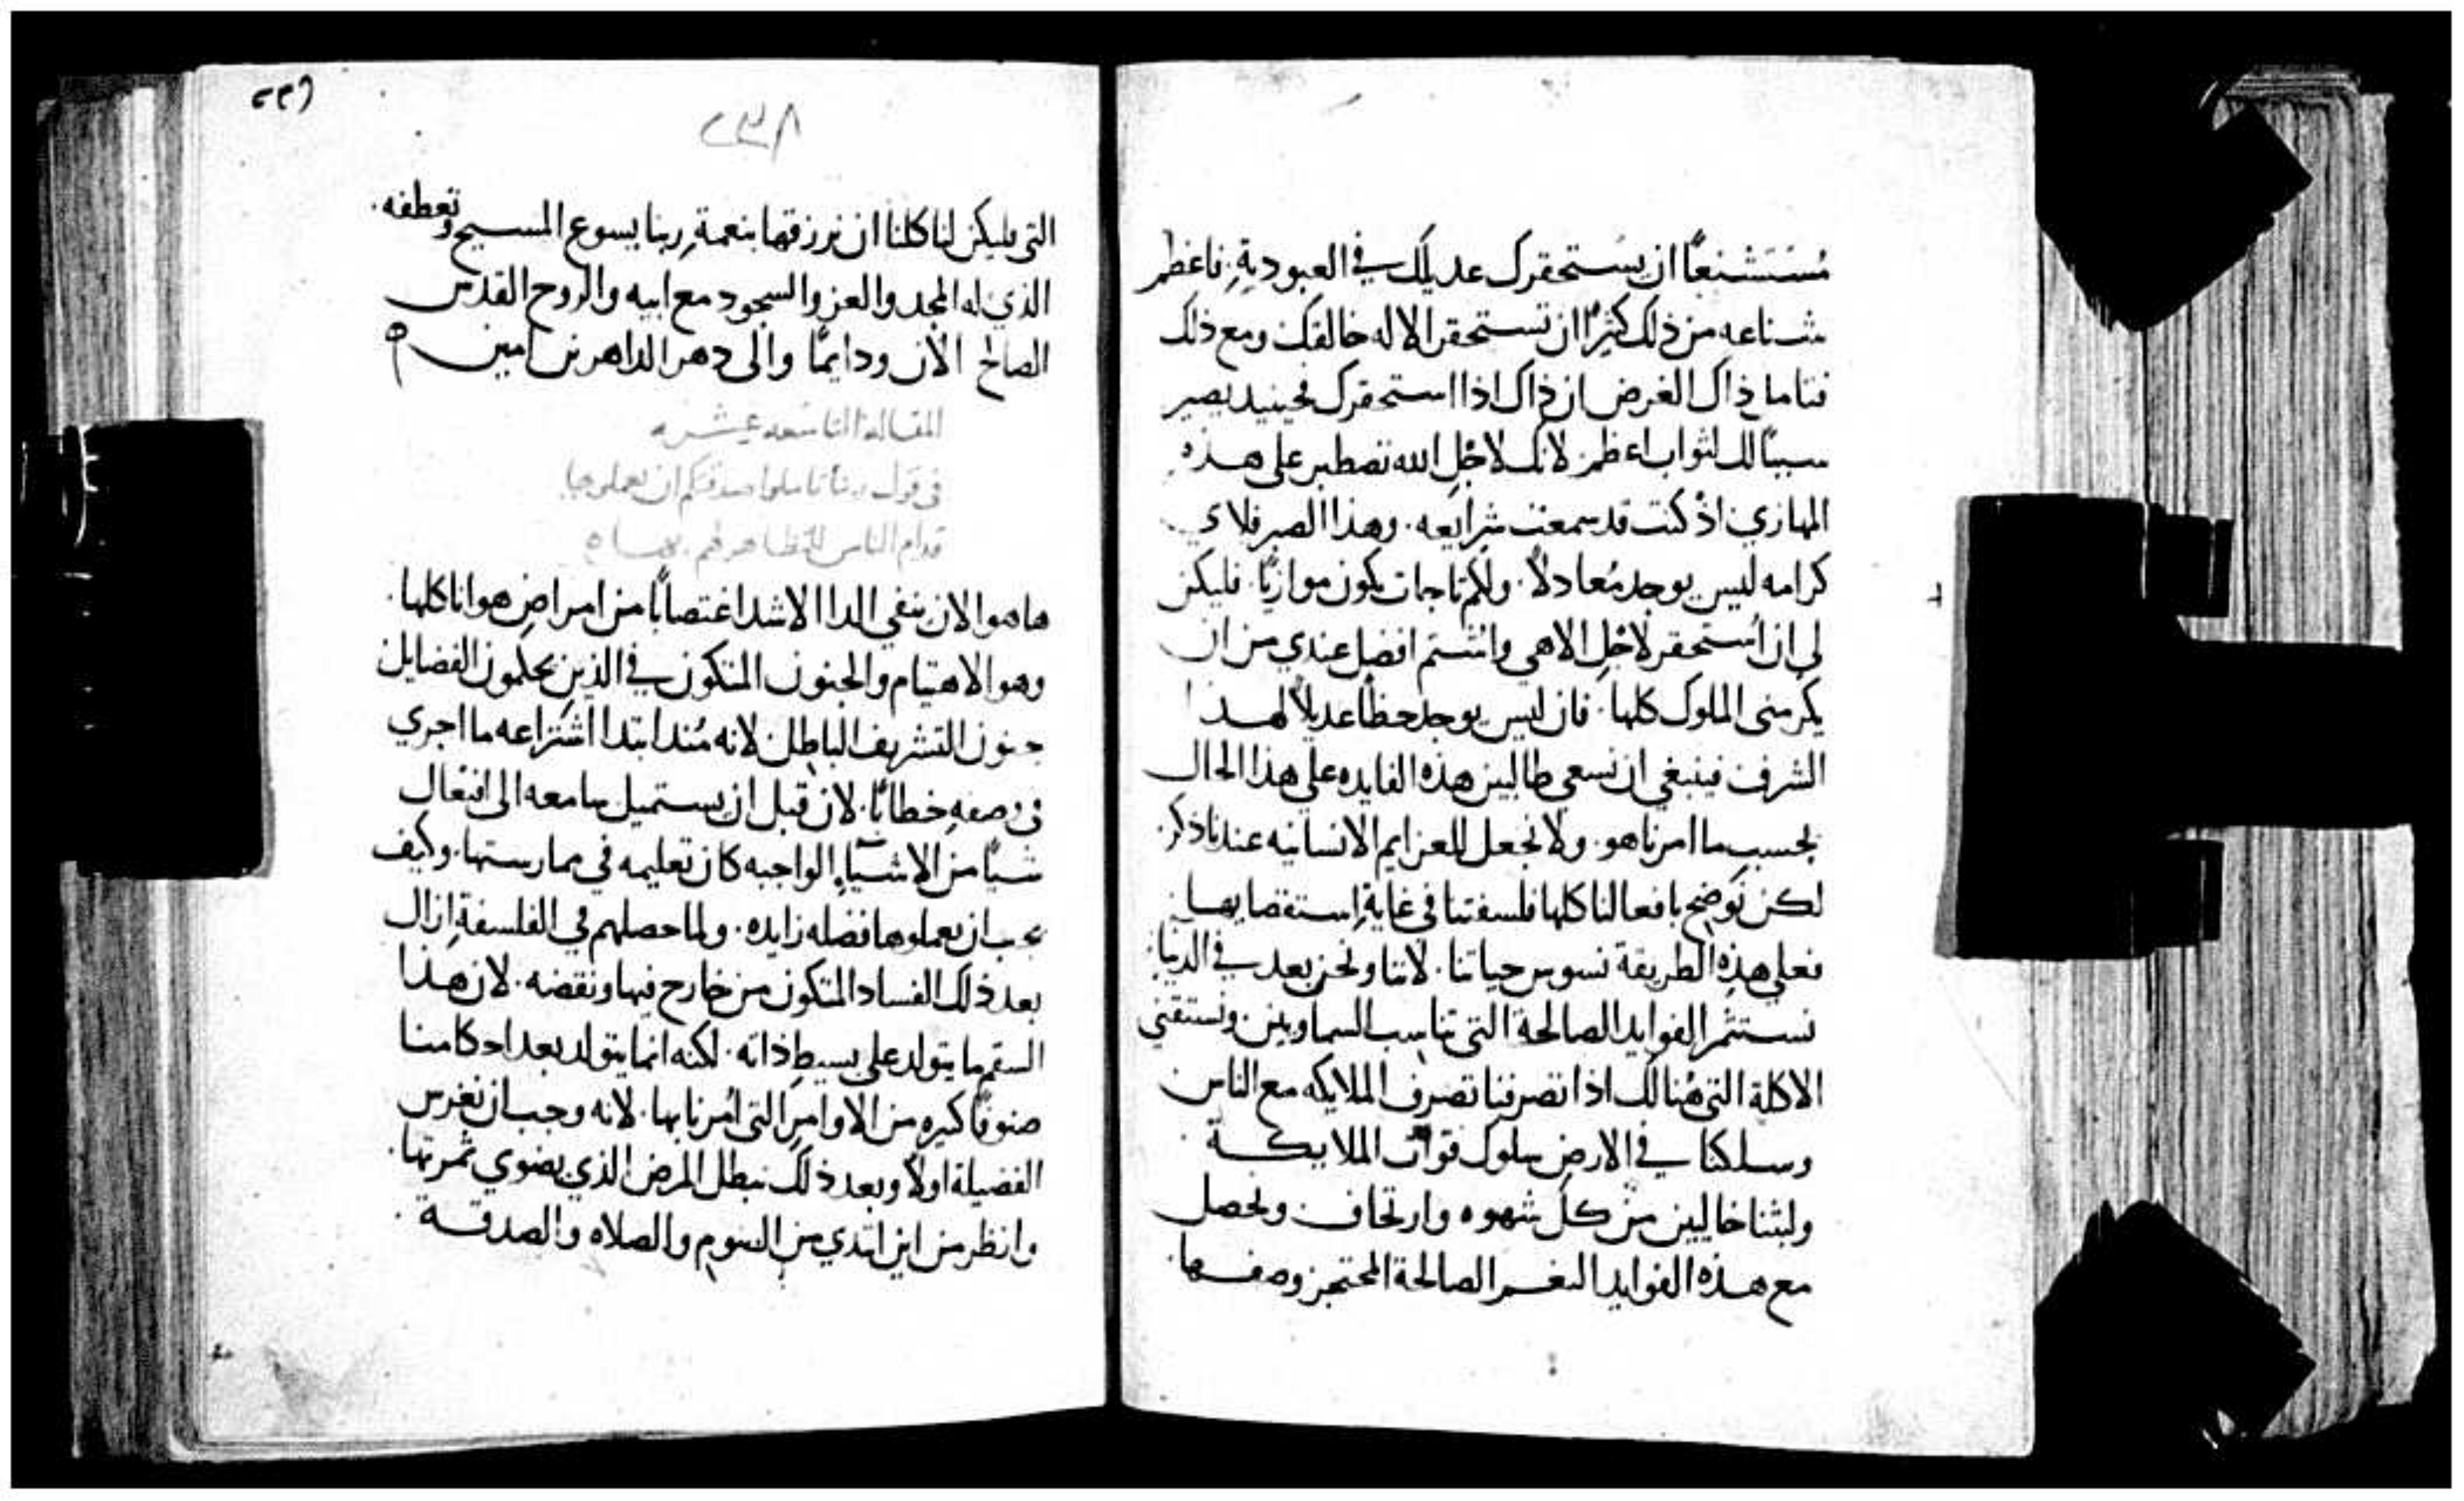 مُسْتَشنعًا ان يستحقرك عديلك في العبودية. فاعظم
شناعه من ذلك كثيرًا ان تستحقر الاله خالقك ومع ذلك
فتامل ذاك الغرض ان ذاك اذا استحقرك فحينيد يصير
سببًا لك لثواب اعظم. لانك لاجْل الله تصطبر على هذه
المهازي اذْ كنت قد سمعت شرايعه. وهذا الصبر فلاي
كرامه ليس يوجد مُعادلاً. ولكم تاجات يكون موازيًا. فليكن
لي ان اُستحقر لاجْل الاهي واشتم افضل عندي من ان
يكرمني الملوك كلها. فان ليس يوجد حظًا عديلاً لهذا
الشرف فينبغي ان نسعى طالبين هذه الفايده على هذا الحال
بحسب ما امرنا هو. ولا نجعل للعزايم الانسانيه عندنا ذكر.
لكن نوضح بافعالنا كلها فلسفتنا في غاية استقصايها
فعلى هذه الطريقة نسوس حياتنا. لاننا ونحن بعد في الدنيا
نستثمر الفوايد الصالحة التي تناسب السماويين ونستقني
الاكلة التي هُنالك اذا تصرفنا تصرف الملايكه مع الناس
وسلكنا في الارض سلوك قوات الملايكة
ولبثنا خاليين من كل شهوه وارتجاف ونحصل
مع هذه الفوايد النعم الصالحة المحتجز وصفها.
٢٣٢
التي فليكن لنا كلنا ان نرزقها بنعمة ربنا يسوع المسيح وتعطفه.
الذي له المجد والعز والسجود مع ابيه والروح القدس
الصالح الان ودايمًا والى دهر الداهرين امين
المقاله التاسعه عشره
في قول ربنا تاملوا صدقتكم ان تعملوها
قدام الناس للتظاهر لهم بها
ها هو الان ينفي الدا الاشد اغتصابًا من امراض هوانا كلها.
وهو الاهتيام والجنون المتكون في الذين يحكمون الفضايل
جنون التشريف الباطل لانه مُنذ ابتدا اشتراعه ما اجري
في وصفه خطابًا. لان قبل ان يستميل سامعه الى افتعال
شيًا من الاشيا الواجبه كان تعليمه في ممارستها. وكيف
يجب ان يعملوها فضله زايده. ولما حصلهم في الفلسفة ازال
بعد ذلك الفساد المتكون من خارج فيها ونقضه. لان هذا
السقم ما يتولد على بسيط ذاته. لكنه انما يتولد بعد احكامنا
صنوفًا كيره من الاوامر التي اُمرنا بها. لانه وجب ان نغرس
الفضيلة اولاً وبعد ذلك نبطل المرض الذي يضوي ثمرتها.
وانظر من اين ابتدي من الصوم والصلاه والصدقة.